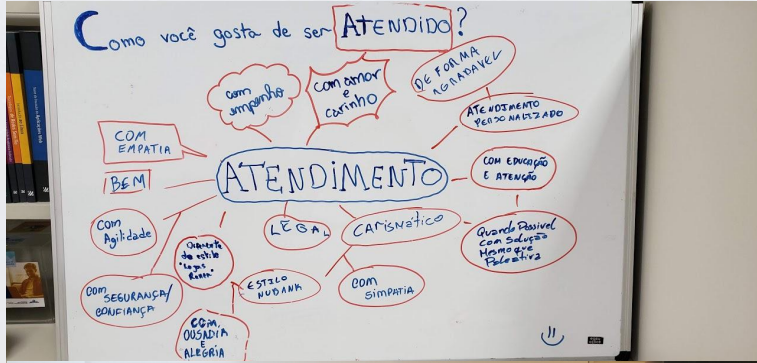 Como você gosta de ser ATENDIDO?
com
empenho
com amor
e
carinho
DE FORMA
AGRADAVEL
ATENDIMENTO
PERSONALIZADO
COM
EMPATIA
BEM
ATENDIMENTO
COM EDUCAÇÃO
E ATENÇÃO
Com
Agilidade
LEGAL
CARISMÁTICO
Quando Possivel
com Solução
Mesmo que
Paleativa
Diferente
do estilo
com
SEGURANÇA/
CONFIANÇA
ESTILO
NUBANK
COM
SIMPATIA
COM
OUSADIA
E
ALEGRIA